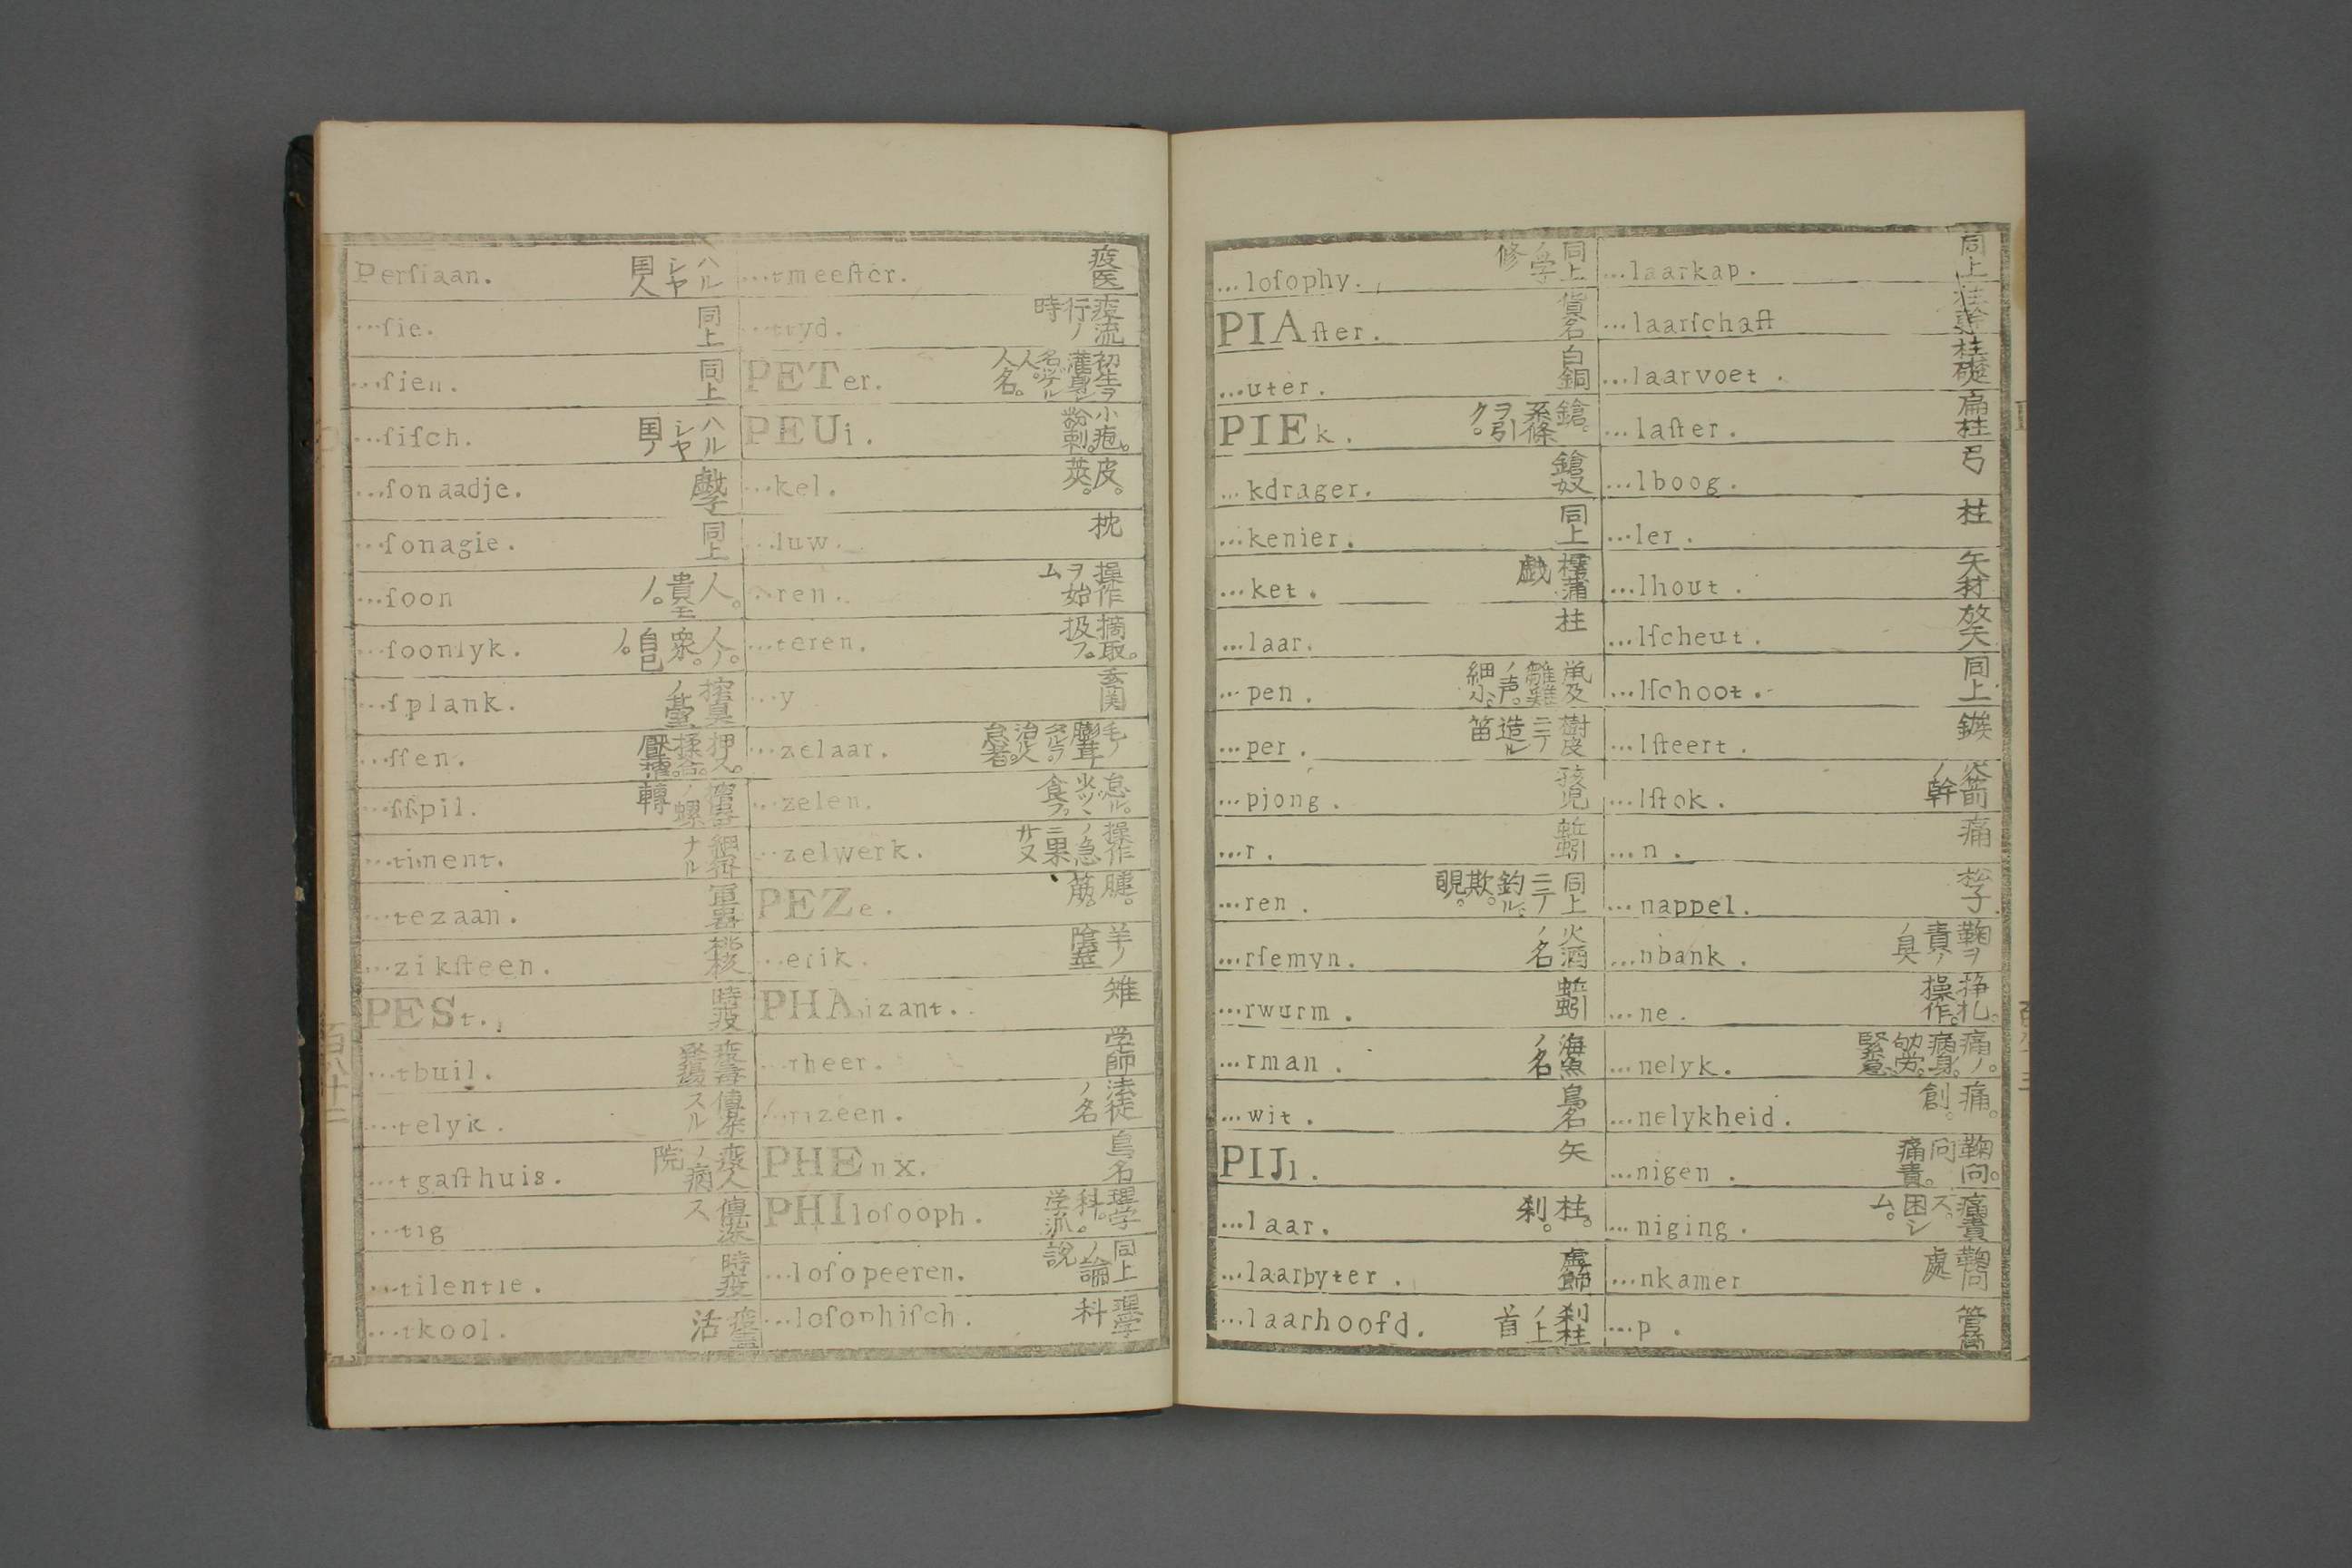 Perſiaan. ハルシヤ国人
...ſie. 同上
...ſien. 同上
...ſiſch. ハルシヤ国ノ
...ſonaadje. 戯子
...ſonagie. 同上
...ſoon 人。貴モノ。
...ſoonlyk. 人ノ。衆。自己ノ。
...ſplank. 搾具ノ臺
...ſſen. 押ス。揉合。壓搾。
...ſſpil. ノ螺轉
...timent. ナル
...tezaan. 軍器
...zikſteen. 桃核
PESt. 時疫
...tbuil. 疫毒
...telyk. 傳染スル
...tgaſthuis. 疫人ノ病院
...tig 傳染ス
...tilentie. 時疫
...tkool. 活
百八十二
...tmeeſter. 疫医
...ttyd. 疫流行ノ時
PETer. 初生ヲ人。人名。
PEUi. 小疱。粉刺。
...kel. 皮。莢。
...luw. 枕
...ren. 操作ヲ始ム
...teren. 摘取。扱フ。
...y 玄関
...zelaar. 毛ノ治ル人。怠者。
...zelen. 怠ル。食フ。
...zelwerk. 操作ノ急ニ果サヌ
PEZe. 腱。筋。
...erik. 羊ノ陰莖
PHAizant. 雉
...rheer. 学師
...rizeen. 法徒ノ名
PHEnx. 鳥名
PHIloſooph. 理学科。学派。
...loſopeeren. 同上ノ論説
...loſophiſch. 理学科
...loſophy. 同上ノ学修
PIAſter. 貨名
...uter. 白銅
PIEk. 鎗。系條ヲ引ク。
...kdrager. 鎗奴
...kenier. 同上
...ket. 樗蒲戯
...laar. 柱
...pen. 鼠及雛雞ノ声。細小。
...per. 樹皮ニテ造ル笛
...pjong. 孩児
...r. 蚯蚓
...ren. 同上ニテ釣ル。欺。覗。
...rſemyn. 火酒ノ名
...rwurm. 蚯蚓
...rman. 海魚ノ名
...wit. 鳥名
PIJl. 矢
...laar. 柱。刹。
...laarbyter. 虚飾
...laarhoofd. 刹柱ノ上首
...laarkap. 同上
...laarſchaft 柱幹
...laarvoet. 柱礎
...laſter. 扁柱
...lboog. 弓
...ler. 柱
...lhout. 矢材
...lſcheut. 放矢
...lſchoot. 同上
...lſteert. 鏃
...lſtok. 火箭ノ幹
...n. 痛
...nappel. 松子
...nbank. 鞠ヲ責ノ具
...ne. 挣札。操作。
...nelyk. 痛ノ。病身。劬労。緊急。
...nelykheid. 痛。創。
...nigen. 鞠問。問痛責。
...niging. 痛責ス。困シム。
...nkamer 鞠問處
...p. 管筒